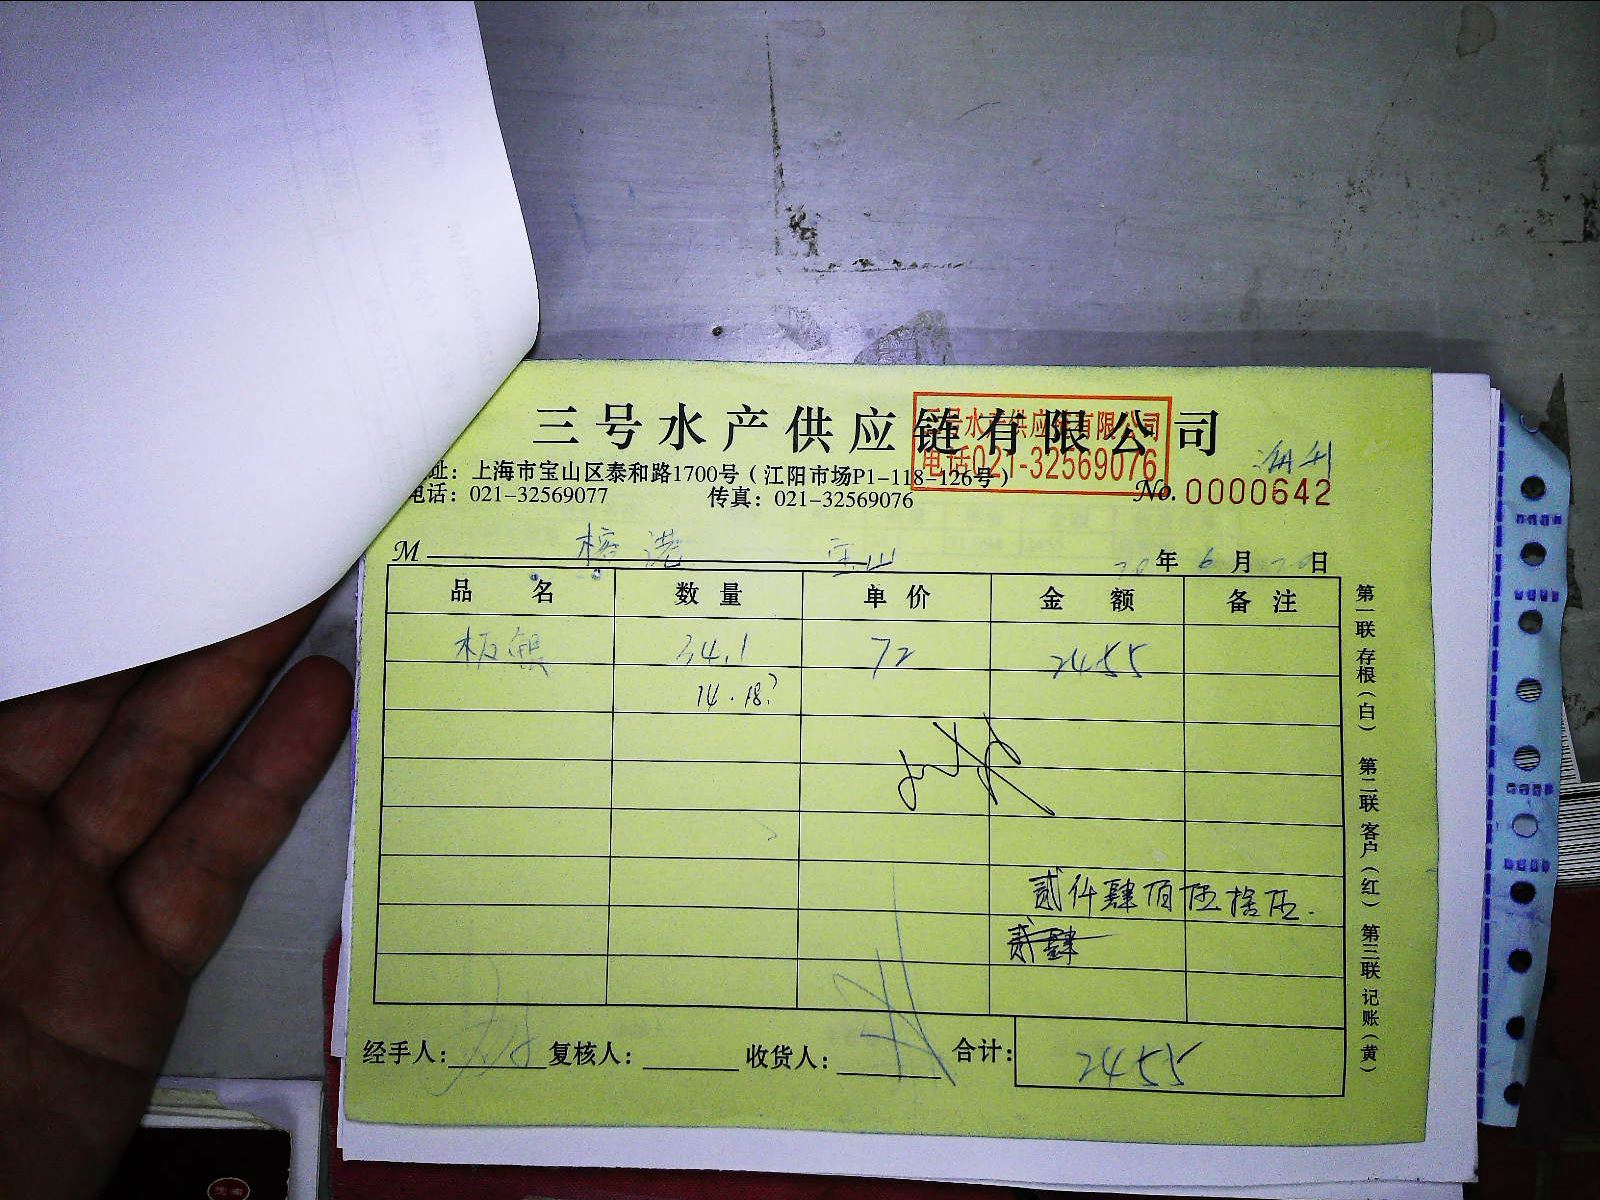 三号水产供应链有限公司
三号水产供应链有限公司
电话021-32569076
址：上海市宝山区泰和路1700号（江阳市场P1-118-126号）
电话：021-32569077 传真：021-32569076
No. 0000642
M 榕港 宝山 20年6月20日
品名 数量 单价 金额 备注
板银 34.1 72 2455
14.18?
贰仟肆佰伍拾伍.
贰肆
经手人： 复核人： 收货人： 合计： 2455
第一联 存根（白） 第二联 客户（红） 第三联 记账（黄）